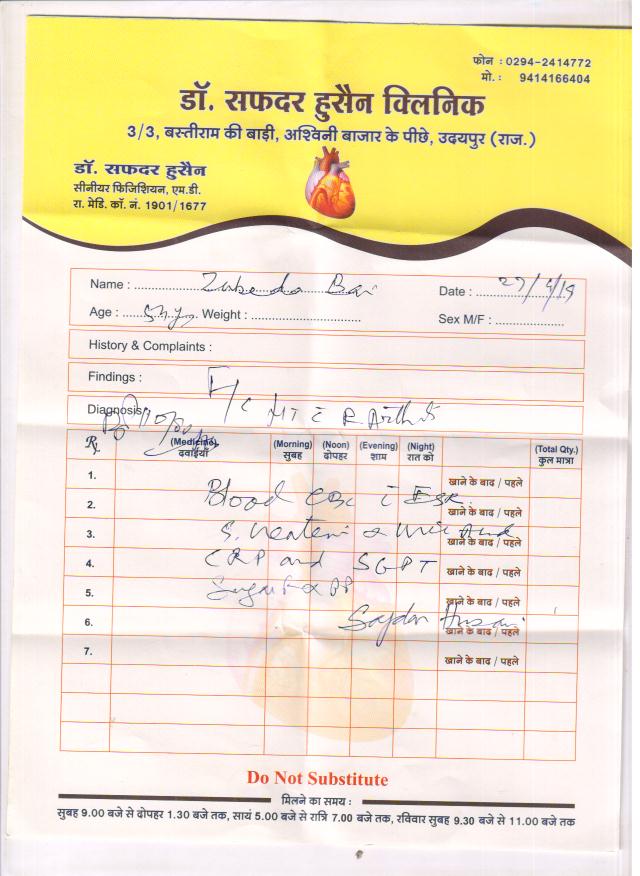 फोन : 0294-2414772
मो. : 9414166404
डॉ. सफदर हुसैन क्लिनिक
3/3, बस्तीराम की बाड़ी, अश्विनी बाजार के पीछे, उदयपुर (राज.)
डॉ. सफदर हुसैन
सीनीयर फिजिशियन, एम.डी.
रा. मेडि. कॉ. नं. 1901/1677
Name : Zubeda Bai Date :
Age : Weight : Sex M/F :
History & Complaints :
Findings :
Diagnosis F/C HT C R Arthritis
(Medicine) (Morning) (Noon) (Evening) (Night) (Total Qty.)
दवाईयाँ सुबह दोपहर शाम रात को कुल मात्रा
1. खाने के बाद / पहले
Blood CBC ESR
2. खाने के बाद / पहले
3. खाने के बाद / पहले
CRP and SGPT
4. खाने के बाद / पहले
Sugar F & PP
5. खाने के बाद / पहले
6. खाने के बाद / पहले
7. खाने के बाद / पहले
Do Not Substitute
मिलने का समय :
सुबह 9.00 बजे से दोपहर 1.30 बजे तक, सायं 5.00 बजे से रात्रि 7.00 बजे तक, रविवार सुबह 9.30 बजे से 11.00 बजे तक